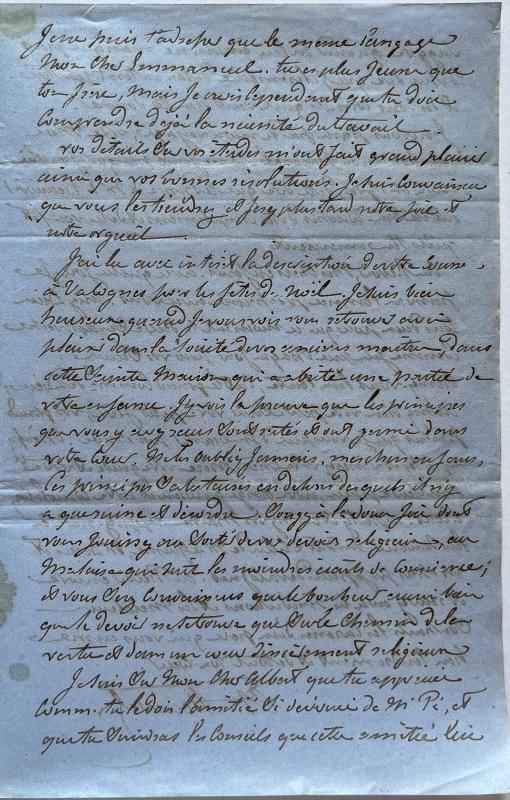 Je ne puis t'adresser que le même langage
Mon cher Emmanuel. tu es plus jeune que
ton frère, mais je crois cependant que tu dois
comprendre déjà la nécessité du travail.
vos détails sur vos études m'ont fait grand plaisir
ainsi que vos bonnes résolutions. Je suis convaincu
que vous les tiendrez et serez plus tard notre joie et
notre orgueil.
J'ai lu avec intérêt la description de votre course
à Valognes pour les fêtes de Noël. Je suis bien
heureux quand je vous vois vous retrouver avec
plaisir dans la société de vos anciens maîtres, dans
cette Sainte Maison qui a abrité une partie de
votre enfance. J'y vois la preuve que les principes
que vous y avez reçus sont restés et ont germé dans
votre cœur. N'oubliez jamais, mes chers enfants,
ces principes salutaires en dehors desquels il n'y
a que ruine et désordre. Songez à la douce joie dont
vous jouissez au sortir de vos devoirs religieux, au
malaise qui suit les moindres écarts de conscience;
et vous serez convaincus que le bonheur aussi bien
que le devoir ne se trouve que sur le chemin de la
vertu et dans un cœur sincèrement religieux
Je suis sûr Mon cher Albert que tu apprécies
comme tu le dois l'amitié si dévouée de Mr Pi, et
que tu suivras les conseils que cette amitié lui